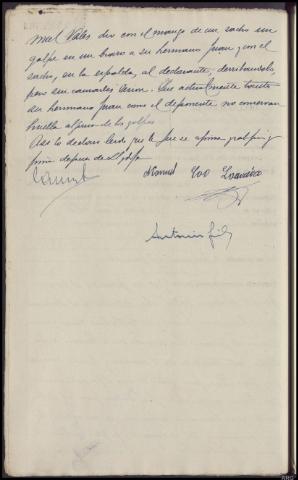 nuel Vales dio con el mango de un sacho un
golpe en un brazo a su hermano Juan y con el
sacho, en la espalda, al declarante, derribandolo,
pero sin causarles lesion. Que actualmente tanto
su hermano Juan como el deponente no conservan
huella alguna de los golpes
Asi lo declara leida que le fue se afirma ratifica y
firma despues de
Manuel
Antonio
ARG